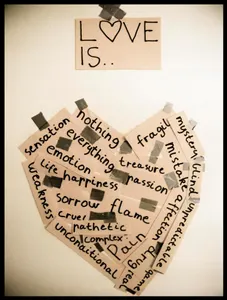 LOVE
IS..
nothing
sensation
everything
emotion
life happiness
weakness
sorrow
cruel
pathetic
complex
unconditional
fragil
treasure
passion
flame
pain
drug
real
game
mystery
mistake
blind
affection
unpredictable